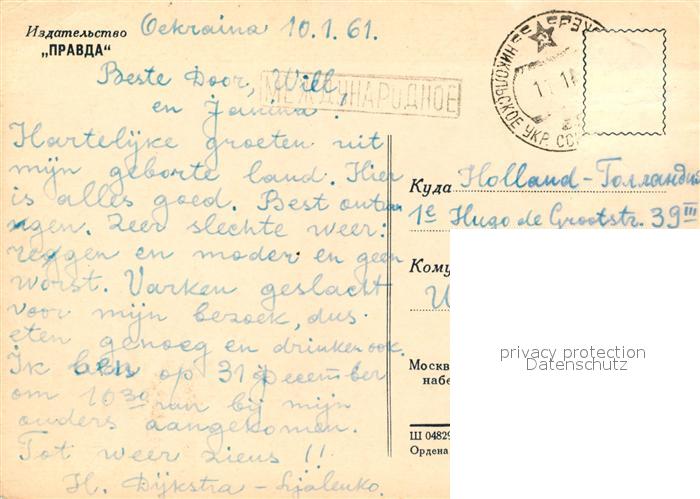 Издательство
„ПРАВДА“
Oekraina 10.1.61.
Beste Door, Will,
en Janina!
МЕЖДУНАРОДНОЕ
Hartelijke groeten uit
mijn geborte land. Hier
is alles goed. Best ontvan
ngen. Zeer slechte weer:
reggen en moder en geen
worst. Varken geslacht
voor mijn bezoek, dus
eten genoeg en drinken ook.
Ik ben op 31 december
om 10 30 van bij mijn
ouders aangekomen.
Tot weer ziens !!
H. Dijkstra -
НИКОЛЬСКОЕ УКР. ССР
Куда Holland - Голландия
1e Hugo de Grootstr. 39 III
Кому
Москва
набе
Ш 04829
Ордена
privacy protection
Datenschutz